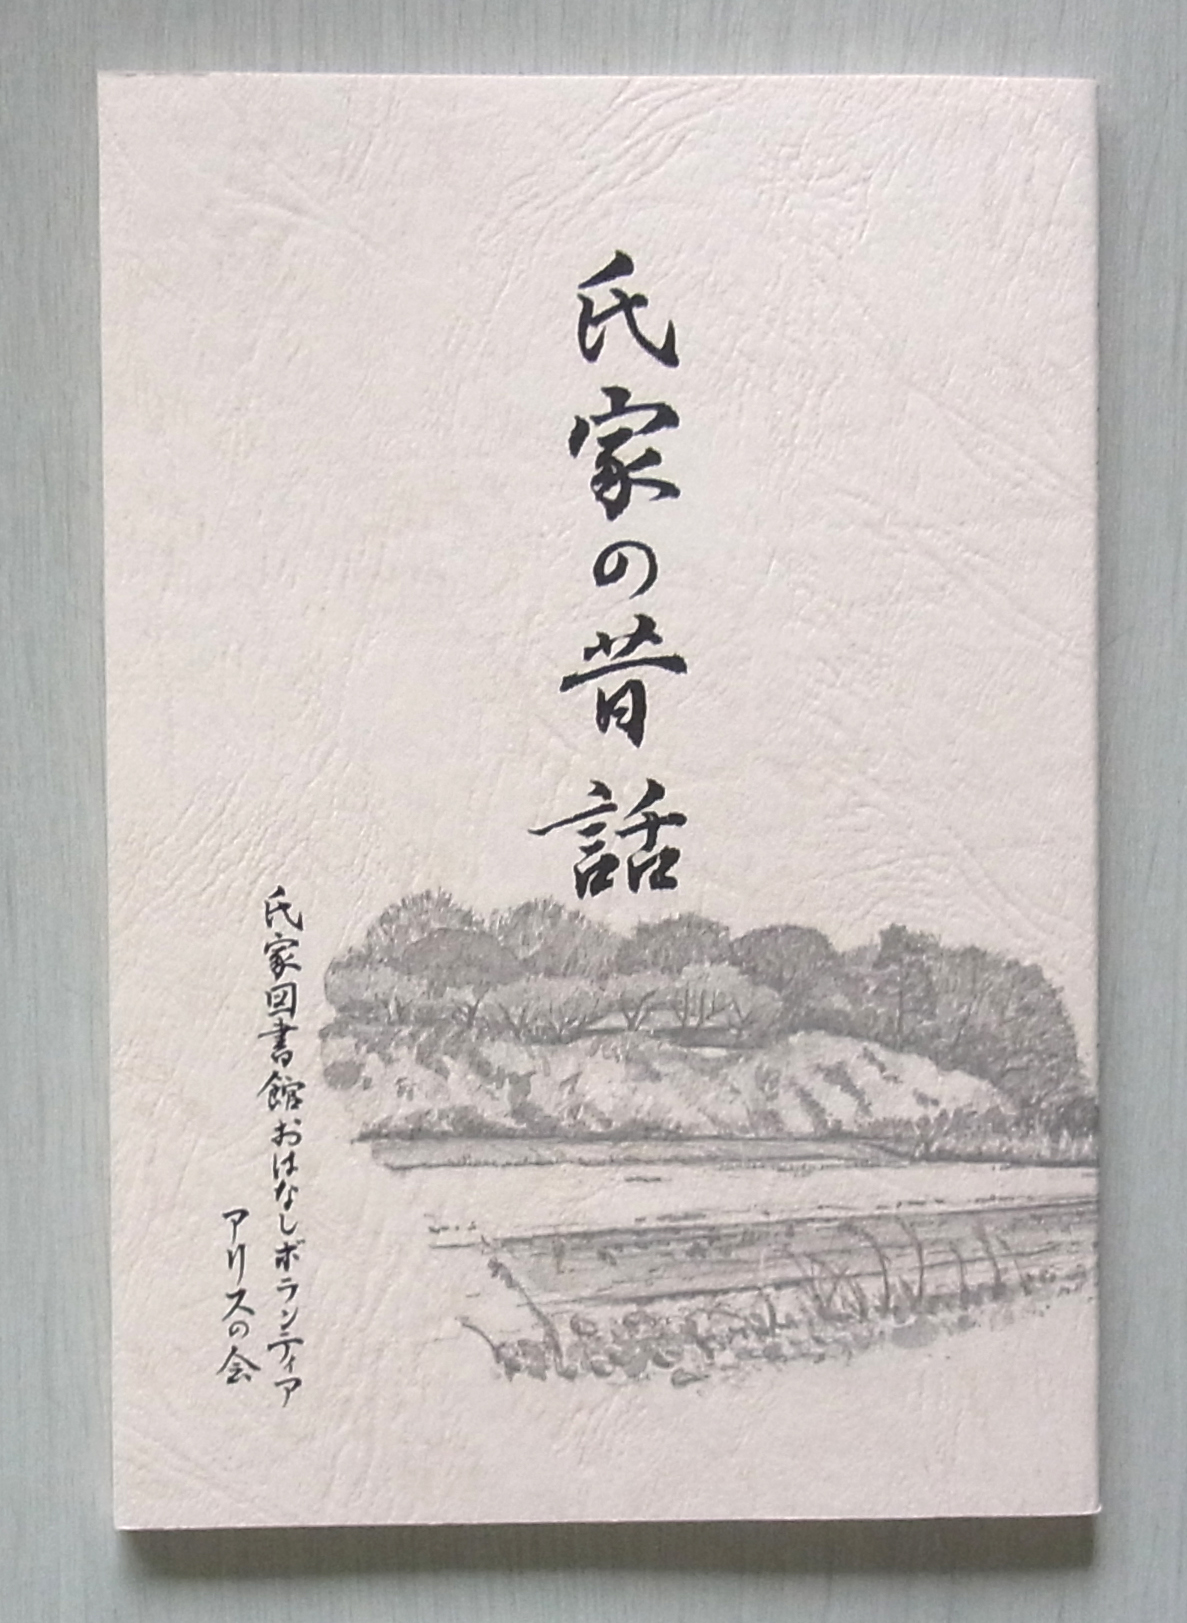 氏家の昔話
氏家図書館おはなしボランティア
アリスの会